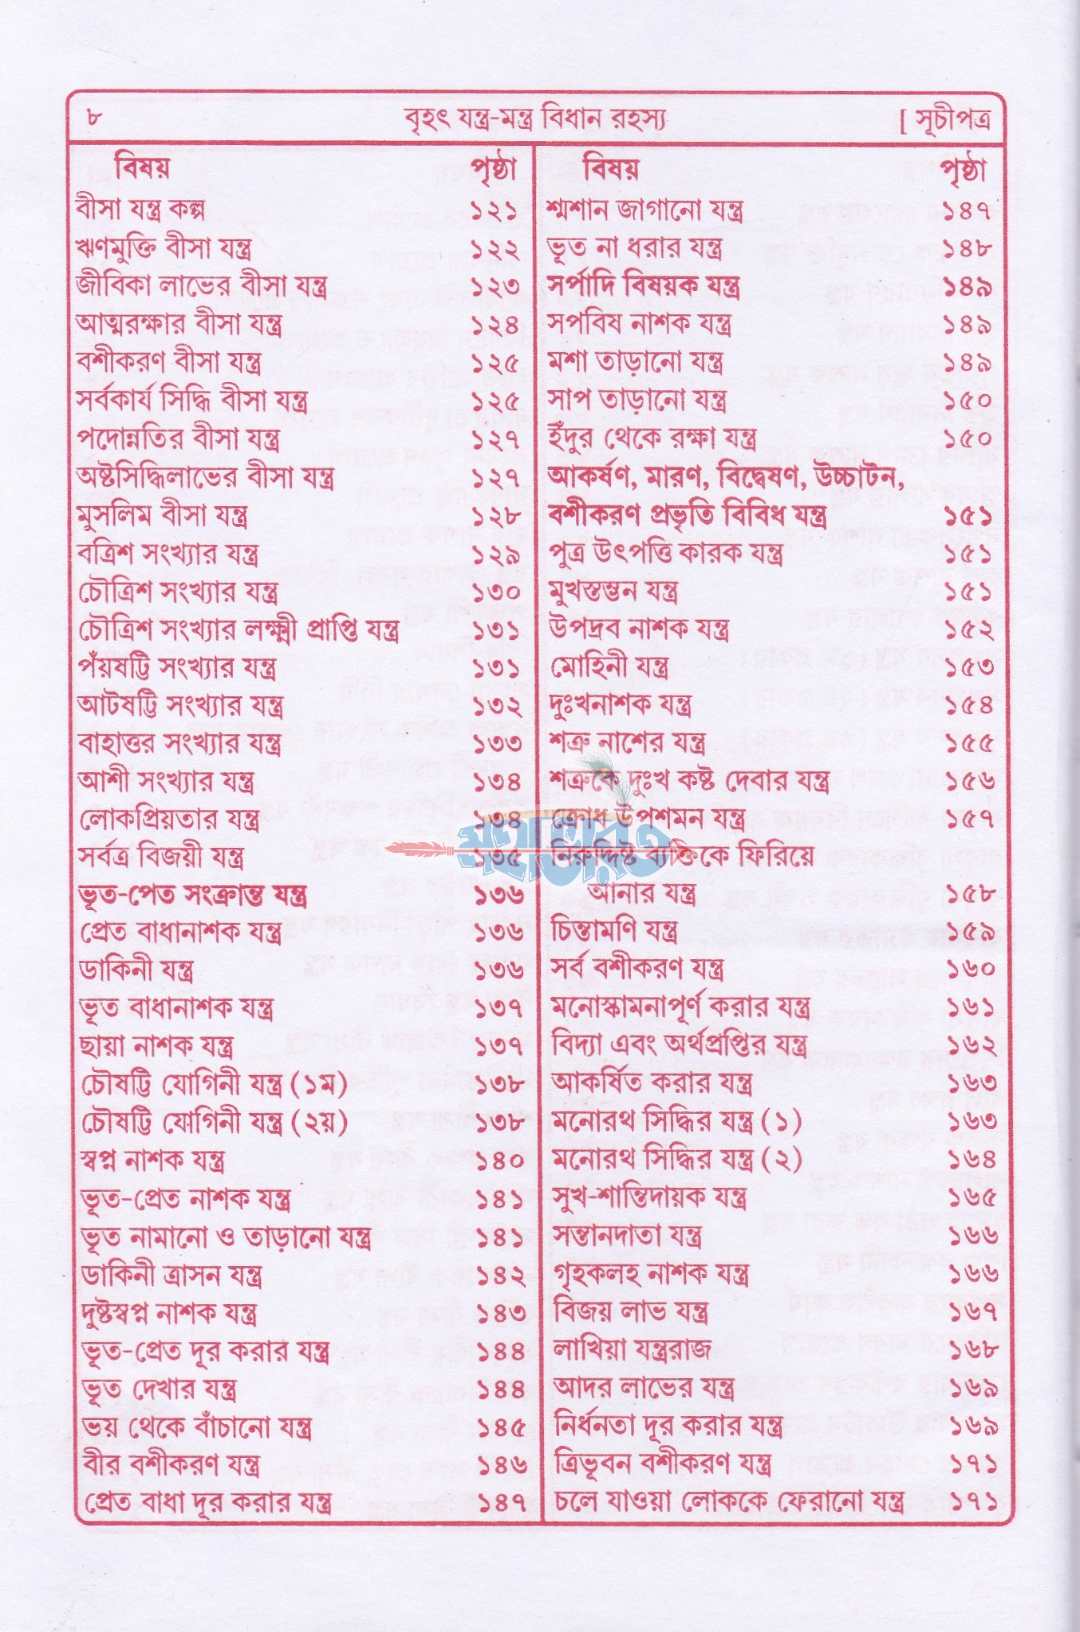 ৮ বৃহৎ যন্ত্র-মন্ত্র বিধান রহস্য [ সূচীপত্র
বিষয় পৃষ্ঠা
বীসা যন্ত্র কল্প ১২১
ঋণমুক্তি বীসা যন্ত্র ১২২
জীবিকা লাভের বীসা যন্ত্র ১২৩
আত্মরক্ষার বীসা যন্ত্র ১২৪
বশীকরণ বীসা যন্ত্র ১২৫
সর্বকার্য সিদ্ধি বীসা যন্ত্র ১২৫
পদোন্নতির বীসা যন্ত্র ১২৭
অষ্টসিদ্ধিলাভের বীসা যন্ত্র ১২৭
মুসলিম বীসা যন্ত্র ১২৮
বত্রিশ সংখ্যার যন্ত্র ১২৯
চৌত্রিশ সংখ্যার যন্ত্র ১৩০
চৌত্রিশ সংখ্যার লক্ষ্মী প্রাপ্তি যন্ত্র ১৩১
পঁয়ষট্টি সংখ্যার যন্ত্র ১৩১
আটষট্টি সংখ্যার যন্ত্র ১৩২
বাহাত্তর সংখ্যার যন্ত্র ১৩৩
আশী সংখ্যার যন্ত্র ১৩৪
লোকপ্রিয়তার যন্ত্র ১৩৪
সর্বত্র বিজয়ী যন্ত্র ১৩৫
ভূত-পেত সংক্রান্ত যন্ত্র ১৩৬
প্রেত বাধানাশক যন্ত্র ১৩৬
ডাকিনী যন্ত্র ১৩৬
ভূত বাধানাশক যন্ত্র ১৩৭
ছায়া নাশক যন্ত্র ১৩৭
চৌষট্টি যোগিনী যন্ত্র (১ম) ১৩৮
চৌষট্টি যোগিনী যন্ত্র (২য়) ১৩৮
স্বপ্ন নাশক যন্ত্র ১৪০
ভূত-প্রেত নাশক যন্ত্র ১৪১
ভূত নামানো ও তাড়ানো যন্ত্র ১৪১
ডাকিনী ত্রাসন যন্ত্র ১৪২
দুষ্টস্বপ্ন নাশক যন্ত্র ১৪৩
ভূত-প্রেত দূর করার যন্ত্র ১৪৪
ভূত দেখার যন্ত্র ১৪৪
ভয় থেকে বাঁচানো যন্ত্র ১৪৫
বীর বশীকরণ যন্ত্র ১৪৬
প্রেত বাধা দূর করার যন্ত্র ১৪৭
বিষয় পৃষ্ঠা
শ্মশান জাগানো যন্ত্র ১৪৭
ভূত না ধরার যন্ত্র ১৪৮
সর্পাদি বিষয়ক যন্ত্র ১৪৯
সপবিষ নাশক যন্ত্র ১৪৯
মশা তাড়ানো যন্ত্র ১৪৯
সাপ তাড়ানো যন্ত্র ১৫০
ইঁদুর থেকে রক্ষা যন্ত্র ১৫০
আকর্ষণ, মারণ, বিদ্বেষণ, উচ্চাটন,
বশীকরণ প্রভৃতি বিবিধ যন্ত্র ১৫১
পুত্র উৎপত্তি কারক যন্ত্র ১৫১
মুখস্তম্ভন যন্ত্র ১৫১
উপদ্রব নাশক যন্ত্র ১৫২
মোহিনী যন্ত্র ১৫৩
দুঃখনাশক যন্ত্র ১৫৪
শত্রু নাশের যন্ত্র ১৫৫
শত্রুকে দুঃখ কষ্ট দেবার যন্ত্র ১৫৬
ক্রোধ উপশমন যন্ত্র ১৫৭
নিরুদ্দিষ্ট ব্যক্তিকে ফিরিয়ে
আনার যন্ত্র ১৫৮
চিন্তামণি যন্ত্র ১৫৯
সর্ব বশীকরণ যন্ত্র ১৬০
মনোস্কামনাপূর্ণ করার যন্ত্র ১৬১
বিদ্যা এবং অর্থপ্রপ্তির যন্ত্র ১৬২
আকর্ষিত করার যন্ত্র ১৬৩
মনোরথ সিদ্ধির যন্ত্র (১) ১৬৩
মনোরথ সিদ্ধির যন্ত্র (২) ১৬৪
সুখ-শান্তিদায়ক যন্ত্র ১৬৫
সন্তানদাতা যন্ত্র ১৬৬
গৃহকলহ নাশক যন্ত্র ১৬৬
বিজয় লাভ যন্ত্র ১৬৭
লাখিয়া যন্ত্ররাজ ১৬৮
আদর লাভের যন্ত্র ১৬৯
নির্ধনতা দূর করার যন্ত্র ১৬৯
ত্রিভূবন বশীকরণ যন্ত্র ১৭১
চলে যাওয়া লোককে ফেরানো যন্ত্র ১৭১
মহাভারত